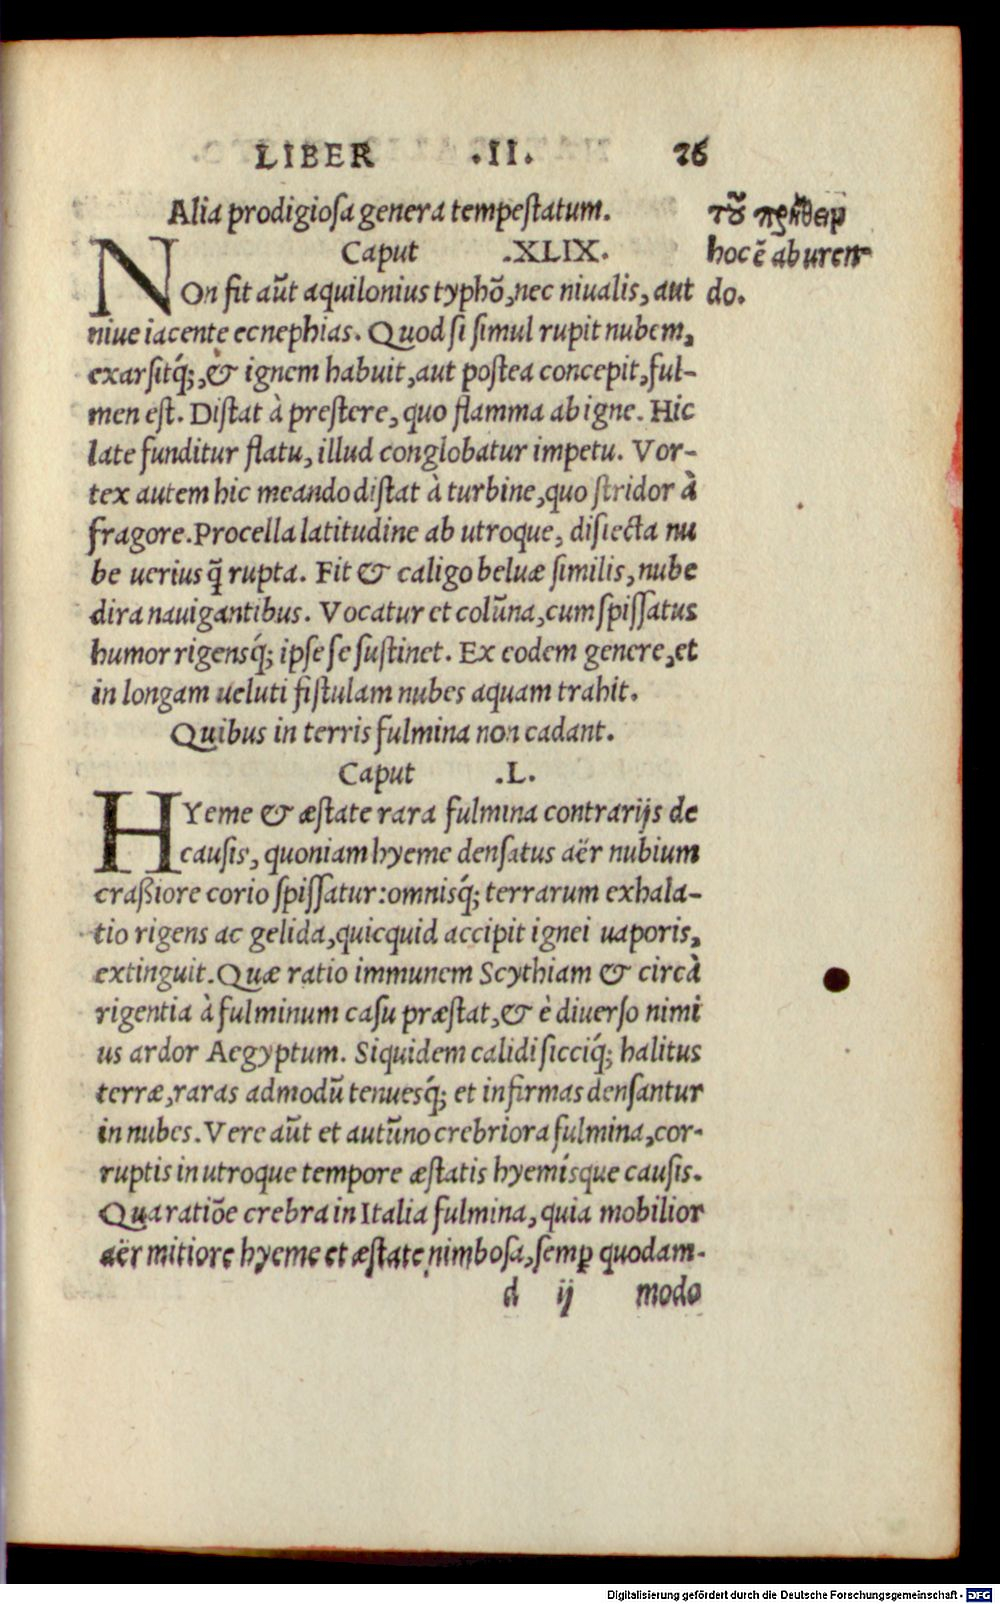 LIBER .II. 26
Alia prodigiosa genera tempestatum.
Caput .XLIX.
NOn fit aũt aquilonius typhõ, nec niualis, aut
niue iacente ecnephias. Quod si simul rupit nubem,
exarsitq́;, & ignem habuit, aut postea concepit, ful-
men est. Distat à prestere, quo flamma ab igne. Hic
late funditur flatu, illud conglobatur impetu. Vor-
tex autem hic meando distat à turbine, quo stridor à
fragore. Procella latitudine ab utroque, disiecta nu
be uerius q̃ rupta. Fit & caligo beluæ similis, nube
dira nauigantibus. Vocatur et colũna, cum spissatus
humor rigensq́; ipse se sustinet. Ex eodem genere, et
in longam ueluti fistulam nubes aquam trahit.
Quibus in terris fulmina non cadant.
Caput .L.
HYeme & æstate rara fulmina contrarijs de
causis, quoniam hyeme densatus aër nubium
craßiore corio spissatur: omnisq́; terrarum exhala-
tio rigens ac gelida, quicquid accipit ignei uaporis,
extinguit. Quæ ratio immunem Scythiam & circà
rigentia à fulminum casu præstat, & è diuerso nimi
us ardor Aegyptum. Siquidem calidi sicciq́; halitus
terræ, raras admodũ tenuesq́; et infirmas densantur
in nubes. Vere aũt et autũno crebriora fulmina, cor-
ruptis in utroque tempore æstatis hyemísque causis.
Qua ratiõe crebra in Italia fulmina, quia mobilior
aër mitiore hyeme et æstate nimbosa, semꝑ quodam-
d ij modo
τȣ͂
hoc ẽ ab uren-
do.
Digitalisierung gefördert durch die Deutsche Forschungsgemeinschaft - DFG